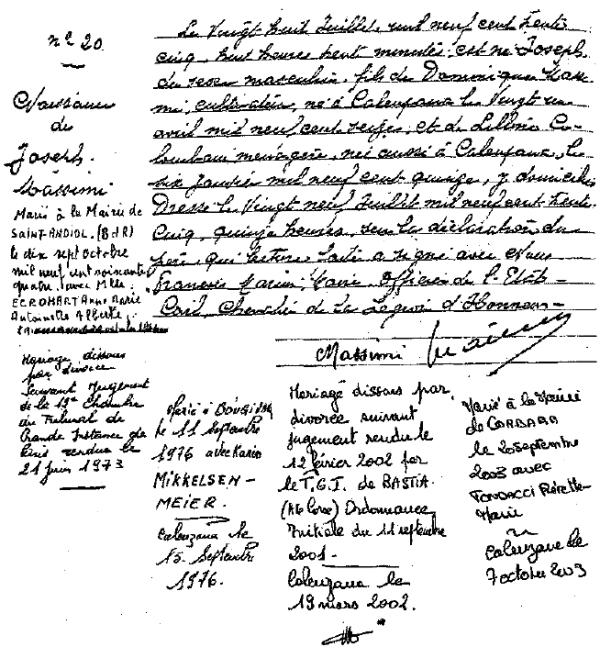 n° 20.
Naissance
de
Joseph
Massimi
Marié à la Mairie de
SAINT-ANDIOL. (B d R)
le dix sept octobre
mil neuf cent soixante
quatre avec Mlle
ECROHART Anne Marie
Antoinette Alberte
Mariage dissous
par divorce
suivant Jugement
de la 13e Chambre
du Tribunal de
Grande Instance de
rendu le
21 juin 1973
Le Vingt huit Juillet, mil neuf cent trente
cinq, huit heures trente minutes, est né Joseph
du sexe masculin, fils de Dominique Mas-
simi, cultivateur, né à Calenzana le Vingt un
avril mil neuf cent seize, et de Co-
lombani ménagère, née aussi à Calenzana, le
six janvier mil neuf cent quinze, y domiciliés
Dressé le Vingt neuf Juillet mil neuf cent trente
cinq, quinze heures, sur la déclaration du
père, qui lecture faite a signé avec Nous
François Marini, Maire, Officier de l'Etat
Civil, Chevalier de la Légion d'Honneur
Massimi
Marié à
le 11 Septembre
1976 avec Karin
MIKKELSEN-
MEIER.
Calenzana le
15 Septembre
1976.
Mariage dissous par
divorce suivant
jugement rendu le
12 février 2002 par
le T.G.I de BASTIA.
(Hte Corse) Ordonnance
Initiale du 11 septembre
2001-
Calenzana le
19 mars 2002.
Marié à la Mairie
de
le 20 septembre
2003 avec
Marie
Calenzana le
7 octobre 2003